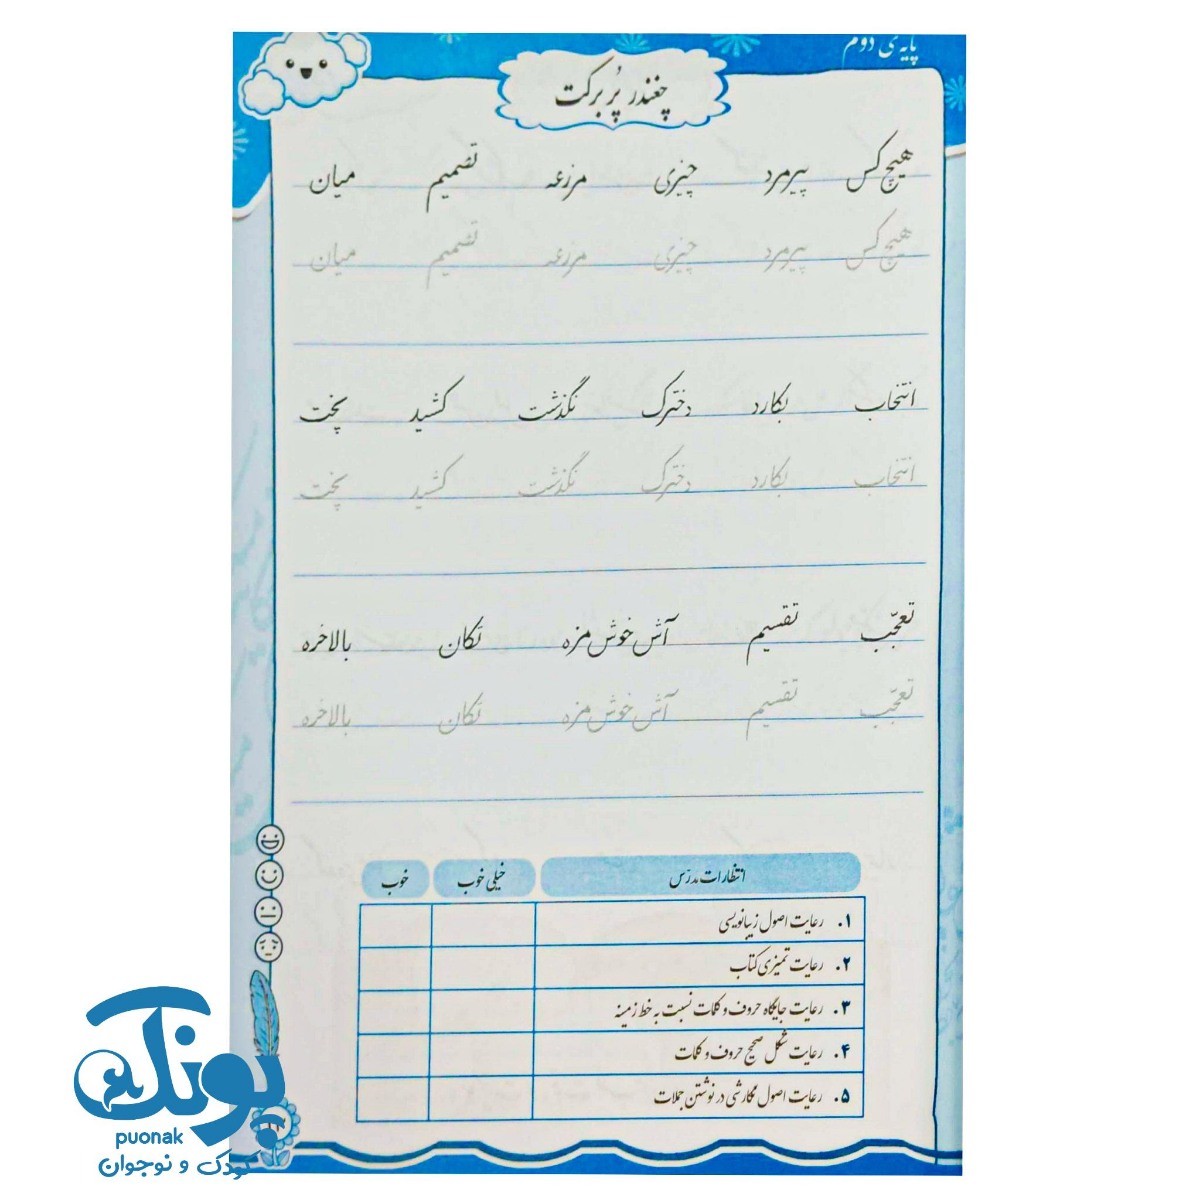 پایه‌ی دوم
چغندر پُر برکت
هیچ‌کس پیرمرد چیزی مزرعه تصمیم میان
هیچ‌کس پیرمرد چیزی مزرعه تصمیم میان
انتخاب بکارد دخترک نگذشت کشید پخت
انتخاب بکارد دخترک نگذشت کشید پخت
تعجّب تقسیم آش خوش‌مزه تکان بالاخره
تعجّب تقسیم آش خوش‌مزه تکان بالاخره
انتظارات مدرّس خیلی خوب خوب
۱. رعایت اصول زیبانویسی
۲. رعایت تمیزی کتاب
۳. رعایت جایگاه حروف و کلمات نسبت به خط زمینه
۴. رعایت شکل صحیح حروف و کلمات
۵. رعایت اصول نگارشی در نوشتن جملات
پونک
puonak
کودک و نوجوان